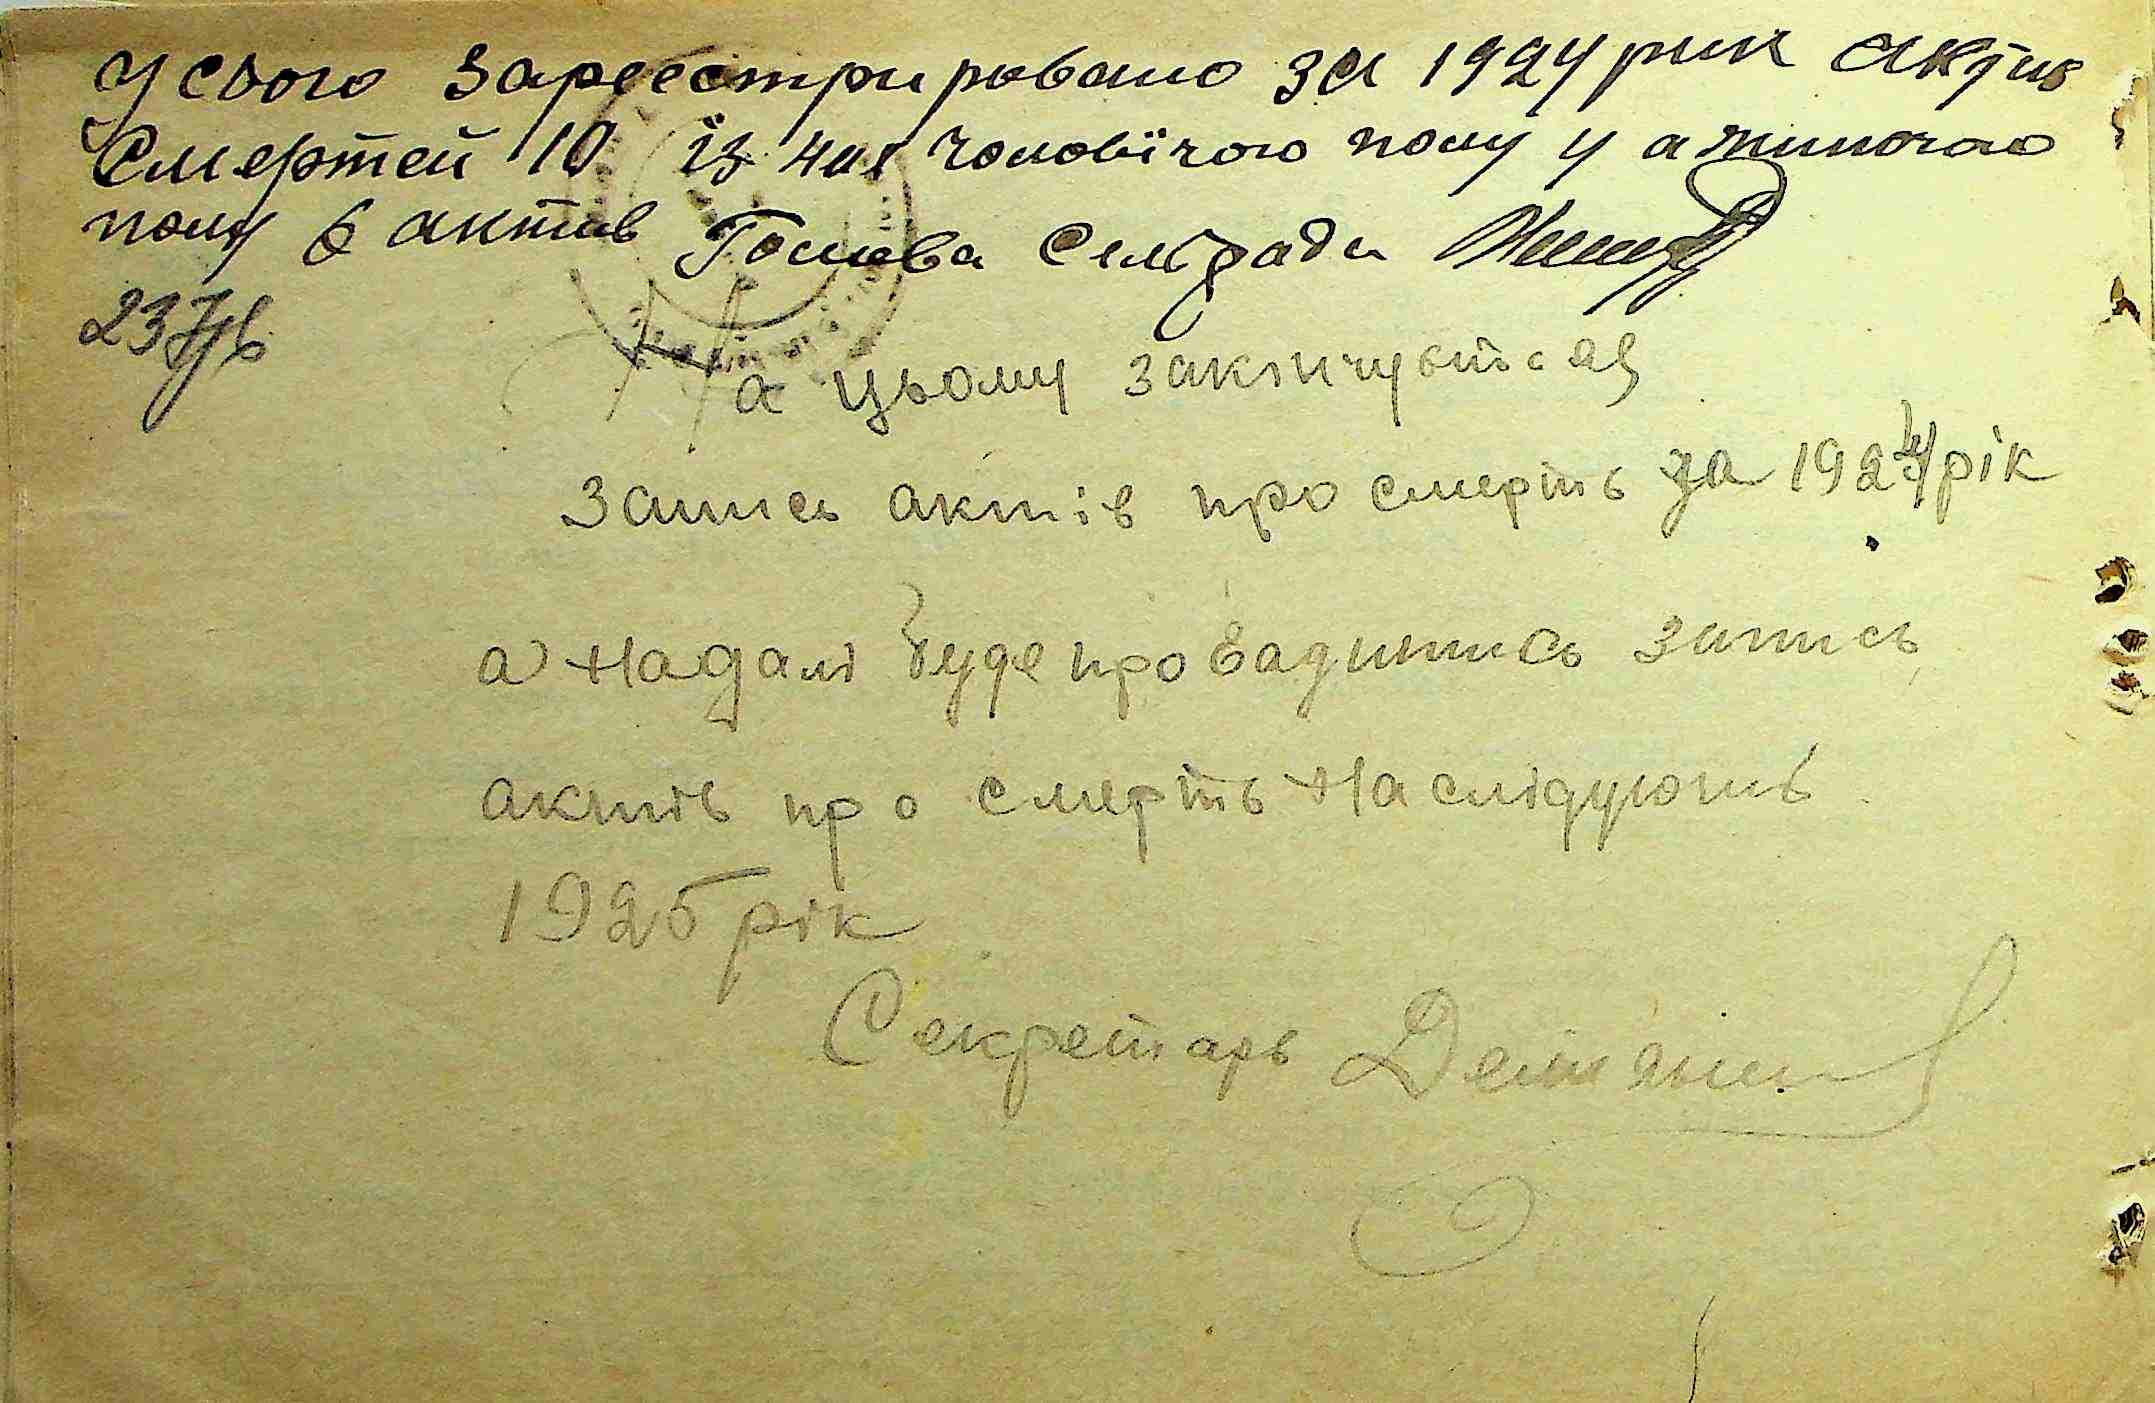 Усього зареєстрировано за 1924 рик актив
Смертей 10 їз них чоловїчого полу 4 а жиночого
полу 6 актив Голова Сельради
На цьому закінчується
Запись актів про смерть за 1924 рік
а надалі буде провадитись запись
актів про смерть на слідуючив
1925 рік
Секретарь